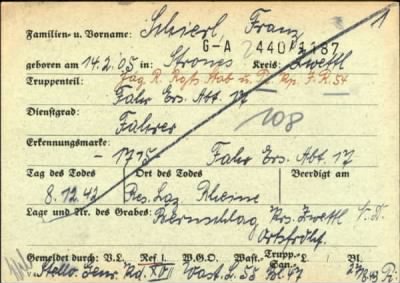 Familien- u. Vorname: Scheierl, Franz 1
G-A 440/1187
geboren am 14.2.05 in: Strones Kreis: Zwettl
Truppenteil:
Fahr Ers. Abt. 17
Dienstgrad:
Fahrer 108
Erkennungsmarke:
- 1715 Fahr Ers. Abt. 17
Tag des Todes Ort des Todes Beerdigt am
8.12.42 Res. Laz. Rheine
Lage und Nr. des Grabes: Bernschlag, Krs. Zwettl
Ortsfrdhf.
Gemeldet durch: V.L. Ref I. W.G.O. Wast.- Trupp.- San.- L. Bl.
Stello. Genr. Kd. XVII Wast. L. 55 Bl. 47